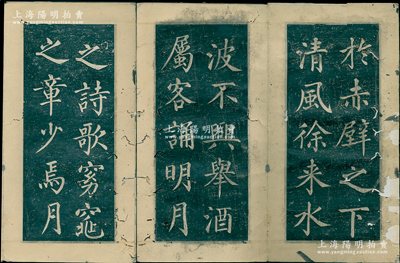 於赤壁之下
清風徐来水
波不興舉酒
屬客誦明月
之詩歌窈窕
之章少焉月
上海陽明拍賣
www.yangmingauction.com